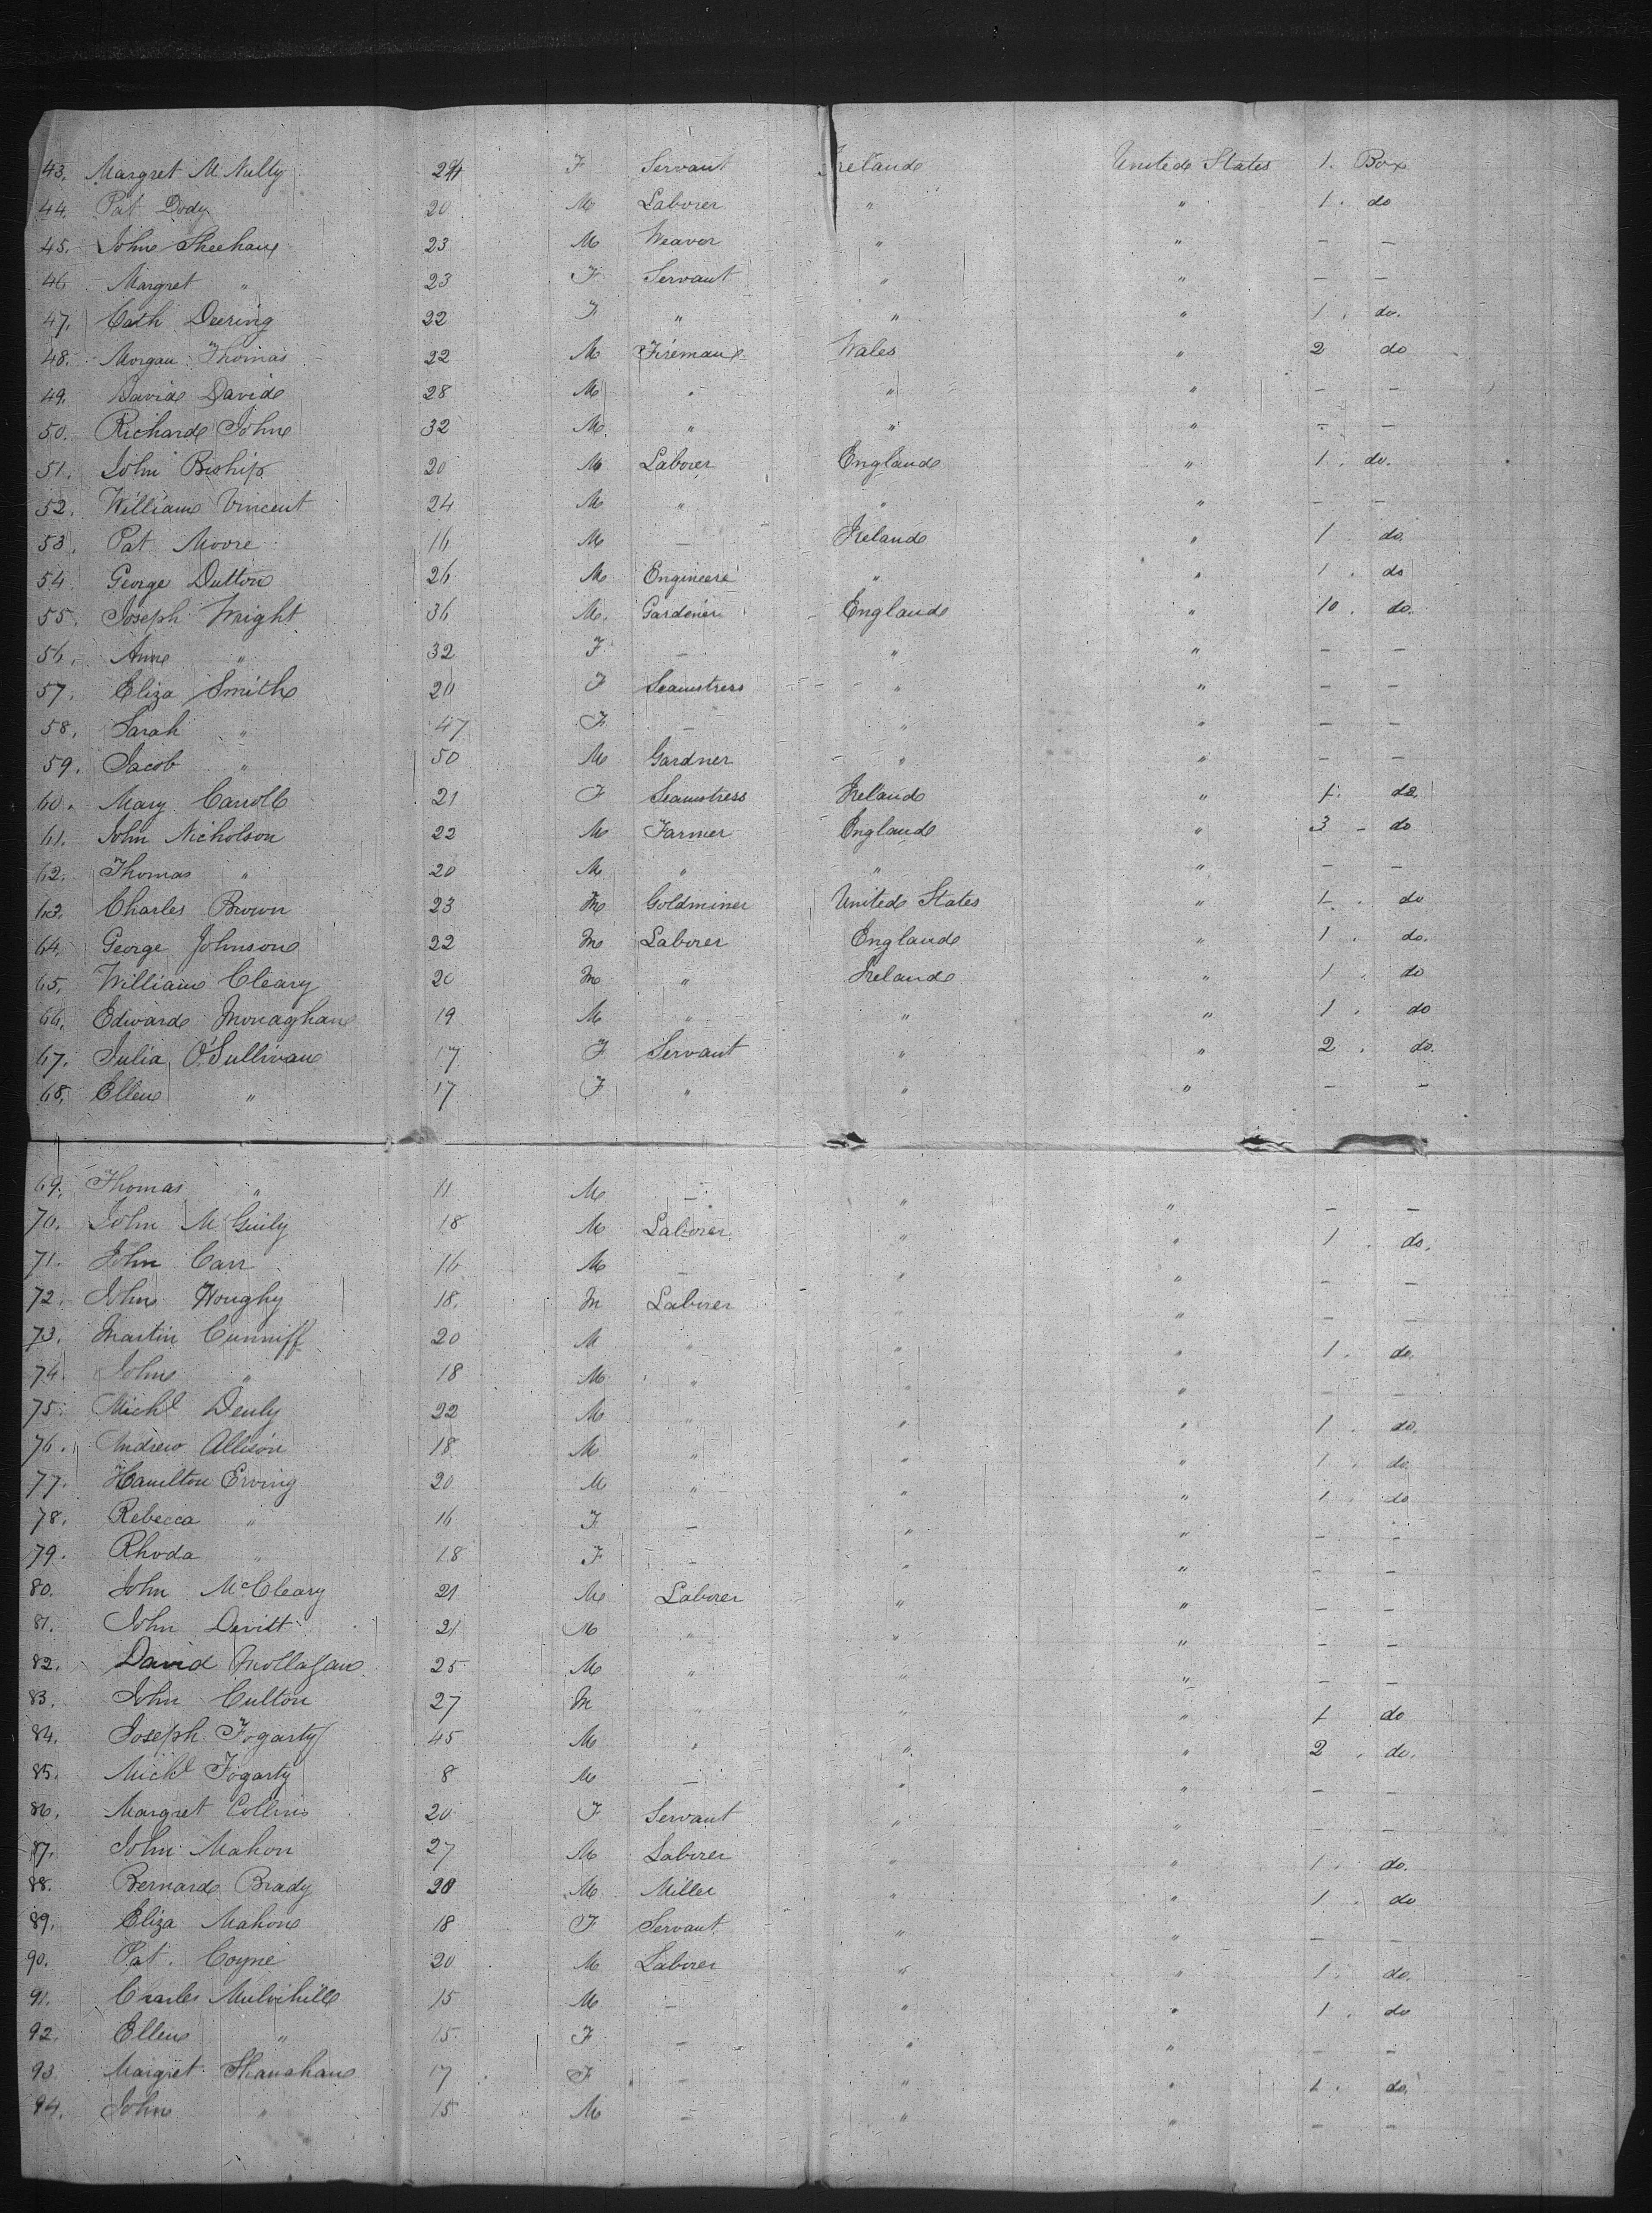 43. Margret McNulty 24 F Servant Ireland United States 1. Box
44. Pat Dody 20 M Laborer " " 1. do
45. John Sheehan 23 M Weaver " " – –
46 Margret " 23 F Servant " " – –
47. Cath Deering 22 F " " " 1. do.
48. Morgan Thomas 22 M Fireman Wales " 2 do
49. David David 28 M " " " – –
50. Richard John 32 M. " " " – –
51. John Biship 20 M Laborer England " 1. do.
52. William Vincent 24 M " " " – –
53. Pat Moore 16 M – Ireland " 1 do.
54. George Dutton 26 M Engineere " " 1. do
55. Joseph Wright 36 M. Gardener England " 10. do.
56. Anne " 32 F – " " – –
57. Eliza Smith 20 F Seamstress " " – –
58. Sarah " 47 F – " " – –
59. Jacob " 50 M Gardner " " – –
60. Mary Carroll 21 F Seamstress Ireland " 1. do.
61. John Nicholson 22 M Farmer England " 3 – do
62. Thomas " 20 M " " " – –
63. Charles Brown 23 M Goldminer United States " 1. do
64. George Johnson 22 M Laborer England " 1. do.
65. William Cleary 20 M " Ireland " 1. do
66. Edward Monaghan 19 M " " " 1. do
67. Julia O'Sullivan 17 F Servant " " 2. do.
68. Ellen " 17 F " " " – –
69. Thomas " 11 M – " " – –
70. John McGuily 18 M Laborer " " 1. do.
71. John Carr 16 M – " " – –
72. John Houghy 18. M Laborer " " – –
73. Martin Cunniff 20 M " " " 1. do.
74. John " 18 M " " " – –
75. Michl Denly 22 M " " " 1. do.
76. Andrew Allison 18 M " " " 1. do.
77. Hamilton Erving 20 M " " " 1. do
78. Rebecca " 16 F – " " – –
79. Rhoda " 18 F – " " – –
80. John McCleary 21 M Laborer " " – –
81. John Devitt 21 M " " " – –
82. David Mollagan 25 M " " " – –
83. John Culton 27 M " " " 1 do
84. Joseph Fogarty 45 M " " " 2. do.
85. Michl Fogarty 8 M – " " – –
86. Margret Collins 20 F Servant " " – –
87. John Mahon 27 M Laborer " " 1. do.
88. Bernard Brady 20 M Miller " " 1. do
89. Eliza Mahon 18 F Servant " " – –
90. Pat. Coyne 20 M Laborer " " 1. do.
91. Charles Mulvihill 15 M – " " 1. do
92. Ellen " 15 F – " " – –
93. Margret Shanahan 17 F – " " 1. do.
94. John " 15 M – " " – –